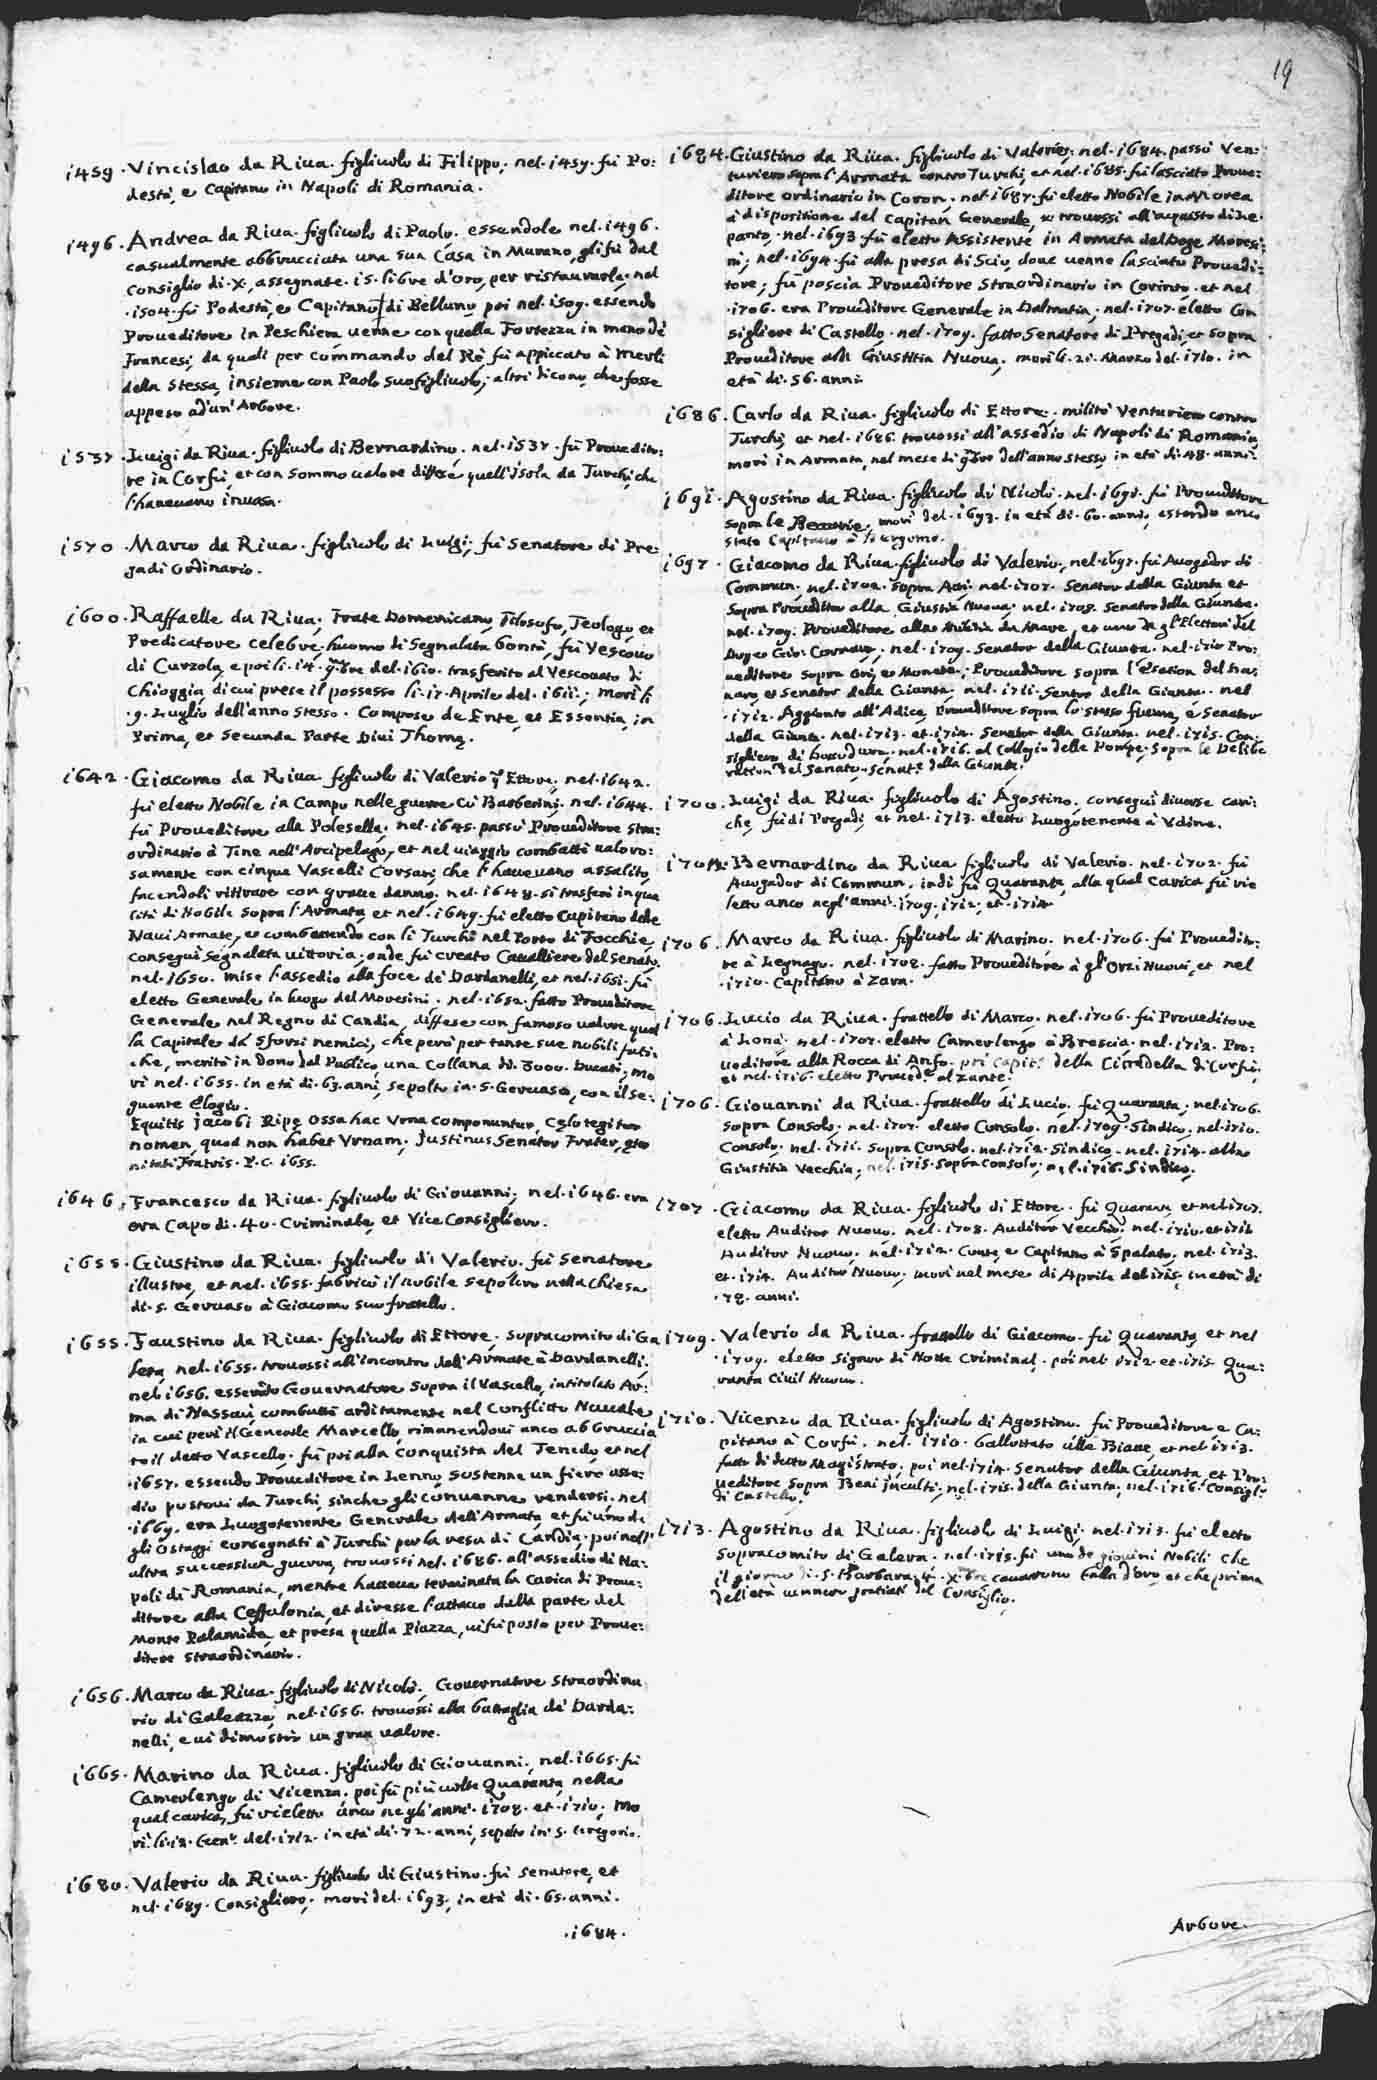 19
1459. Vincislao da Riua. figliuolo di Filippo, nel. 1459. fù Po:
destà, e Capitano in Napoli di Romania.
1496. Andrea da Riua. figliuolo di Paolo. essendole nel. 1496.
casualmente abbrucciata una sua Casa in Murano, gli fù dal
Consiglio di. X, assegnate. 15. libre d'oro, per ristaurarla; nel
.1504. fù Podestà, e Capitano di Belluno, poi nel. 1509. essendo
Proueditore in Peschiera uenne con quella Fortezza in mano dè
Francesi, da quali per commando del Rè fù appiccato à merli
della stessa, insieme con Paolo suo figliuolo; altri dicono, che fosse
appeso ad'un' Arbore.
1537. Luigi da Riua. figliuolo di Bernardino. nel. 1537. fù Proueditor:
re in Corfù, et con sommo ualore diffese quell'Isola da Turchi, che
l'haueuano inuasa.
1570. Marco da Riua. figliuolo di Luigi, fù Senatore di Pre:
gadi Ordinario.
1600. Raffaelle da Riua, Frate Domenicano, Filosofo, Teologo, et
Predicatore celebre, huomo di Segnalata bontà, fù Vescouo
di Curzola, e poi li. 14. 9bre del. 1610. trasferito al Vescouato di
Chioggia, di cui prese il possesso li. 17. Aprile del. 1611.; morì li
.9. Luglio dell'anno stesso. Compose de Ente, et Essentia, in
Prima, et Secunda Parte Diui Thomę.
1642. Giacomo da Riua. figliuolo di Valerio q. Ettore, nel. 1642.
fù eletto Nobile in Campo nelle guerre cò Barberini, nel. 1644.
fù Proueditore alla Polesella. nel. 1645. passò Proueditore stra:
ordinario à Tine nell'Arcipelago, et nel uiaggio combattì ualoro:
samente con cinque Vascelli Corsari, che l'haueuano assalito,
facendoli rittirare con graue danno, nel. 1648. si trasferì in qua
lità di Nobile sopra l'Armata, et nel. 1649. fù eletto Capitano delle
Naui Armate, et combattendo con li Turchi nel Porto di Focchie,
conseguì Segnalata uittoria, onde fù creato Caualliere dal Senato.
nel. 1650. mise l'assedio alla foce dè Dardanelli, et nel. 1651. fù
eletto Generale in luogo del Moresini. nel. 1652. fatto Proueditore
Generale nel Regno di Candia, diffese con famoso ualore quel
la Capitale dà sforzi nemici, che però per tante sue nobili fati:
che, meritò in dono dal Publico una Collana di. 3000. Ducati; mo
rì nel. 1655. in età di. 63. anni, sepolto in. S. Geruaso, con il se:
guente Elogio.
Equitis Jacobi Ripę ossa hac Vrna componuntur, Cęlo tegitur
nomen, quod non habet Vrnam, Justinus Senator Frater, ęter
nitati Fratris. P. C. 1655.
1646. Francesco da Riua. figliuolo di Giouanni; nel. 1646. era
ora Capo di. 40. Criminale, et Vice Consigliero.
1655. Giustino da Riua. figliuolo di Valerio. fù Senatore
illustre, et nel. 1655. fabricò il nobile sepolcro nella Chiesa
di. S. Geruaso à Giacomo suo fratello.
1655. Faustino da Riua. figliuolo di Ettore. sopracomito di Ga
lera, nel. 1655. trouossi all'incontro dell'Armate à Dardanelli.
nel. 1656. essendo Gouernatore sopra il Vascello, intitolato Ar:
ma di Nassaù, combattè arditamente nel Conflitto Nauale,
in cui perì il Generale Marcello, rimanendoui anco abbruccia
to il detto Vascello. fù poi alla conquista del Tenedo, et nel
.1657. essendo Proueditore in Lenno, sostenne un fiero asse:
dio postoui da Turchi, sinche gli conuenne rendersi. nel
.1669. era Luogotenente Generale dell'Armata et fù uno de
gli Ostaggi consegnati à Turchi per la resa di Candia, poi nell'
altra successiua guerra, trouossi nel. 1686. all'assedio di Na:
poli di Romania, mentre haueua terminata la Carica di Proue:
ditore alla Ceffalonia, et diresse l'attacco dalla parte del
Monte Palamida, et presa quella Piazza, ui fù posto per Proue:
ditore Straordinario.
1656. Marco da Riua. figliuolo di Nicolò, Gouernatore Straordina
rio di Galeazza, nel. 1656. trouossi alla battaglia dè Darda:
nelli, e ui dimostrò un gran ualore.
1665. Marino da Riua. figliuolo di Giouanni, nel. 1665. fù
Camerlengo di Vicenza. poi fù più uolte Quaranta, nella
qual carica, fù rieletto anco negl'anni. 1708. et. 1710. Mo
rì. li. 12. Genr. del. 1712. in età di. 72. anni, sepolto in. S. Gregorio.
1680. Valerio da Riua. figliuolo di Giustino. fù Senatore, et
nel. 1689. Consigliero; morì del. 1693, in età di. 65. anni.
.1684.
1684. Giustino da Riua. figliuolo di Valerio; nel. 1684. passò Ven:
turiero sopra l'Armata contro Turchi, et nel. 1685. fù lasciato Proue:
ditore ordinario in Coron. nel. 1687. fù eletto Nobile in Morea
à dispositione del Capitan Generale, e trouossi all'acquisto di Le:
panto, nel. 1693. fù eletto Assistente in Armata del Doge Moresi:
ni; nel. 1694. fù alla presa di Scio, doue uenne lasciato Prouedi:
tore; fù poscia Proueditore Straordinario in Corinto, et nel
.1706. era Proueditore Generale in Dalmatia, nel. 1707. eletto Con
sigliere di Castello. nel. 1709. fatto Senatore di Pregadi, et sopra
Proueditore alla Giustitia Nuoua, morì li. 21. Marzo del. 1710. in
età di. 56. anni.
1686. Carlo da Riua. figliuolo di Ettore. militò Venturiero contro
Turchi, et nel. 1686. trouossi all'assedio di Napoli di Romania,
morì in Armata, nel mese di 9bre dell'anno stesso, in età di. 48. anni.
1691. Agostino da Riua. figliuolo di Nicolò. nel. 1691. fù Proueditore
sopra le Beccarie, morì del. 1693. in età di. 60. anni, essendo anco
stato Capitano à Bergomo.
1697. Giacomo da Riua. figliuolo di Valerio, nel. 1697. fù Auogador di
Commun, nel. 1702. sopra Atti. nel. 1707. Senator della Giunta et
Sopra Proueditor alla Giustitia Nuoua. nel. 1708. Senator della Giunta.
nel. 1709. Proueditore alla Militia da Mare, et uno de gl'Elettori del
Doge Gio: Corner, nel. 1709. Senator della Giunta. nel. 1710 Pro:
ueditore sopra Ori, e Monete, Proueditore sopra l'Esation del Da,
naro, et Senator della Giunta, nel. 1711. Senator della Giunta. nel
.1712. Aggionto all'Adice, Proueditore sopra lo stesso fiume, e Senator
della Giunta. nel. 1713. et. 1714. Senator della Giunta. nel. 1715. Con:
sigliero di Dorsoduro, nel. 1716. al Collegio delle Pompe, sopra le Delibe
rationi del Senato, Senatr. della Giunta.
1700. Luigi da Riua. figliuolo di Agostino. conseguì diuerse cari:
che, fù di Pregadi, et nel. 1713. eletto Luogotenente à Vdine.
1702. Bernardino da Riua figliuolo di Valerio. nel. 1702. fù
Auogador di Commun, indi fù Quaranta, alla qual carica fù rie
letto anco negl'anni. 1709, 1712, et. 1714.
1706. Marco da Riua. figliuolo di Marino. nel. 1706. fù Proueditor:
re à Legnago. nel. 1708. fatto Proueditore à gl'Orzi Nuoui, et nel
.1710. Capitano à Zara.
1706. Lucio da Riua. fratello di Marco. nel. 1706. fù Proueditore
à Lonà. nel. 1707. eletto Camerlengo à Brescia. nel. 1712. Pro:
ueditore alla Rocca di Anfo, poi Capit. della Cittadella di Corfù,
et nel. 1716. eletto Proued. al Zante.
1706. Giouanni da Riua. fratello di Lucio. fù Quaranta; nel. 1706.
sopra Consolo. nel. 1707. eletto Consolo. nel. 1709 Sindico. nel. 1710.
Consolo. nel. 1711. Sopra Consolo. nel. 1712. Sindico. nel. 1714. alla
Giustitia Vecchia, nel. 1715. sopra Consolo, nel. 1716. Sindico.
1707. Giacomo da Riua. figliuolo di Ettore. fù Quaranta et nel. 1707.
eletto Auditor Nuouo. nel. 1708. Auditor Vecchio. nel. 1710. et. 1711.
Auditor Nuouo. nel. 1712. Conte, e Capitano à Spalato. nel. 1713.
et. 1714. Auditor Nuouo, morì nel mese di Aprile del. 1715. in età di
.78. anni.
1709. Valerio da Riua. fratello di Giacomo. fù Quaranta, et nel
.1709. eletto Signor di Notte Criminal, poi nel 1712. et. 1715. Qua:
ranta Ciuil Nuouo.
1710. Vicenzo da Riua. figliuolo di Agostino. fù Proueditore e Ca:
pitano à Corfù. nel. 1710. ballottato alle Biaue, et nel. 1713.
fatto di detto Magistrato, poi nel. 1714. Senator della Giunta, et Pro:
ueditore sopra Beni inculti; nel. 1715. della Giunta, nel. 1716. Consiglr.
di Castello.
1713. Agostino da Riua. figliuolo di Luigi, nel. 1713. fù eletto
Sopracomito di Galera. nel. 1715. fù uno de giouini Nobili che
il giorno di. S. Barbara. 4. Xbre cauarono balla d'oro, et che prima
dell'età uennero gratiati del Consiglio.
Arbore.